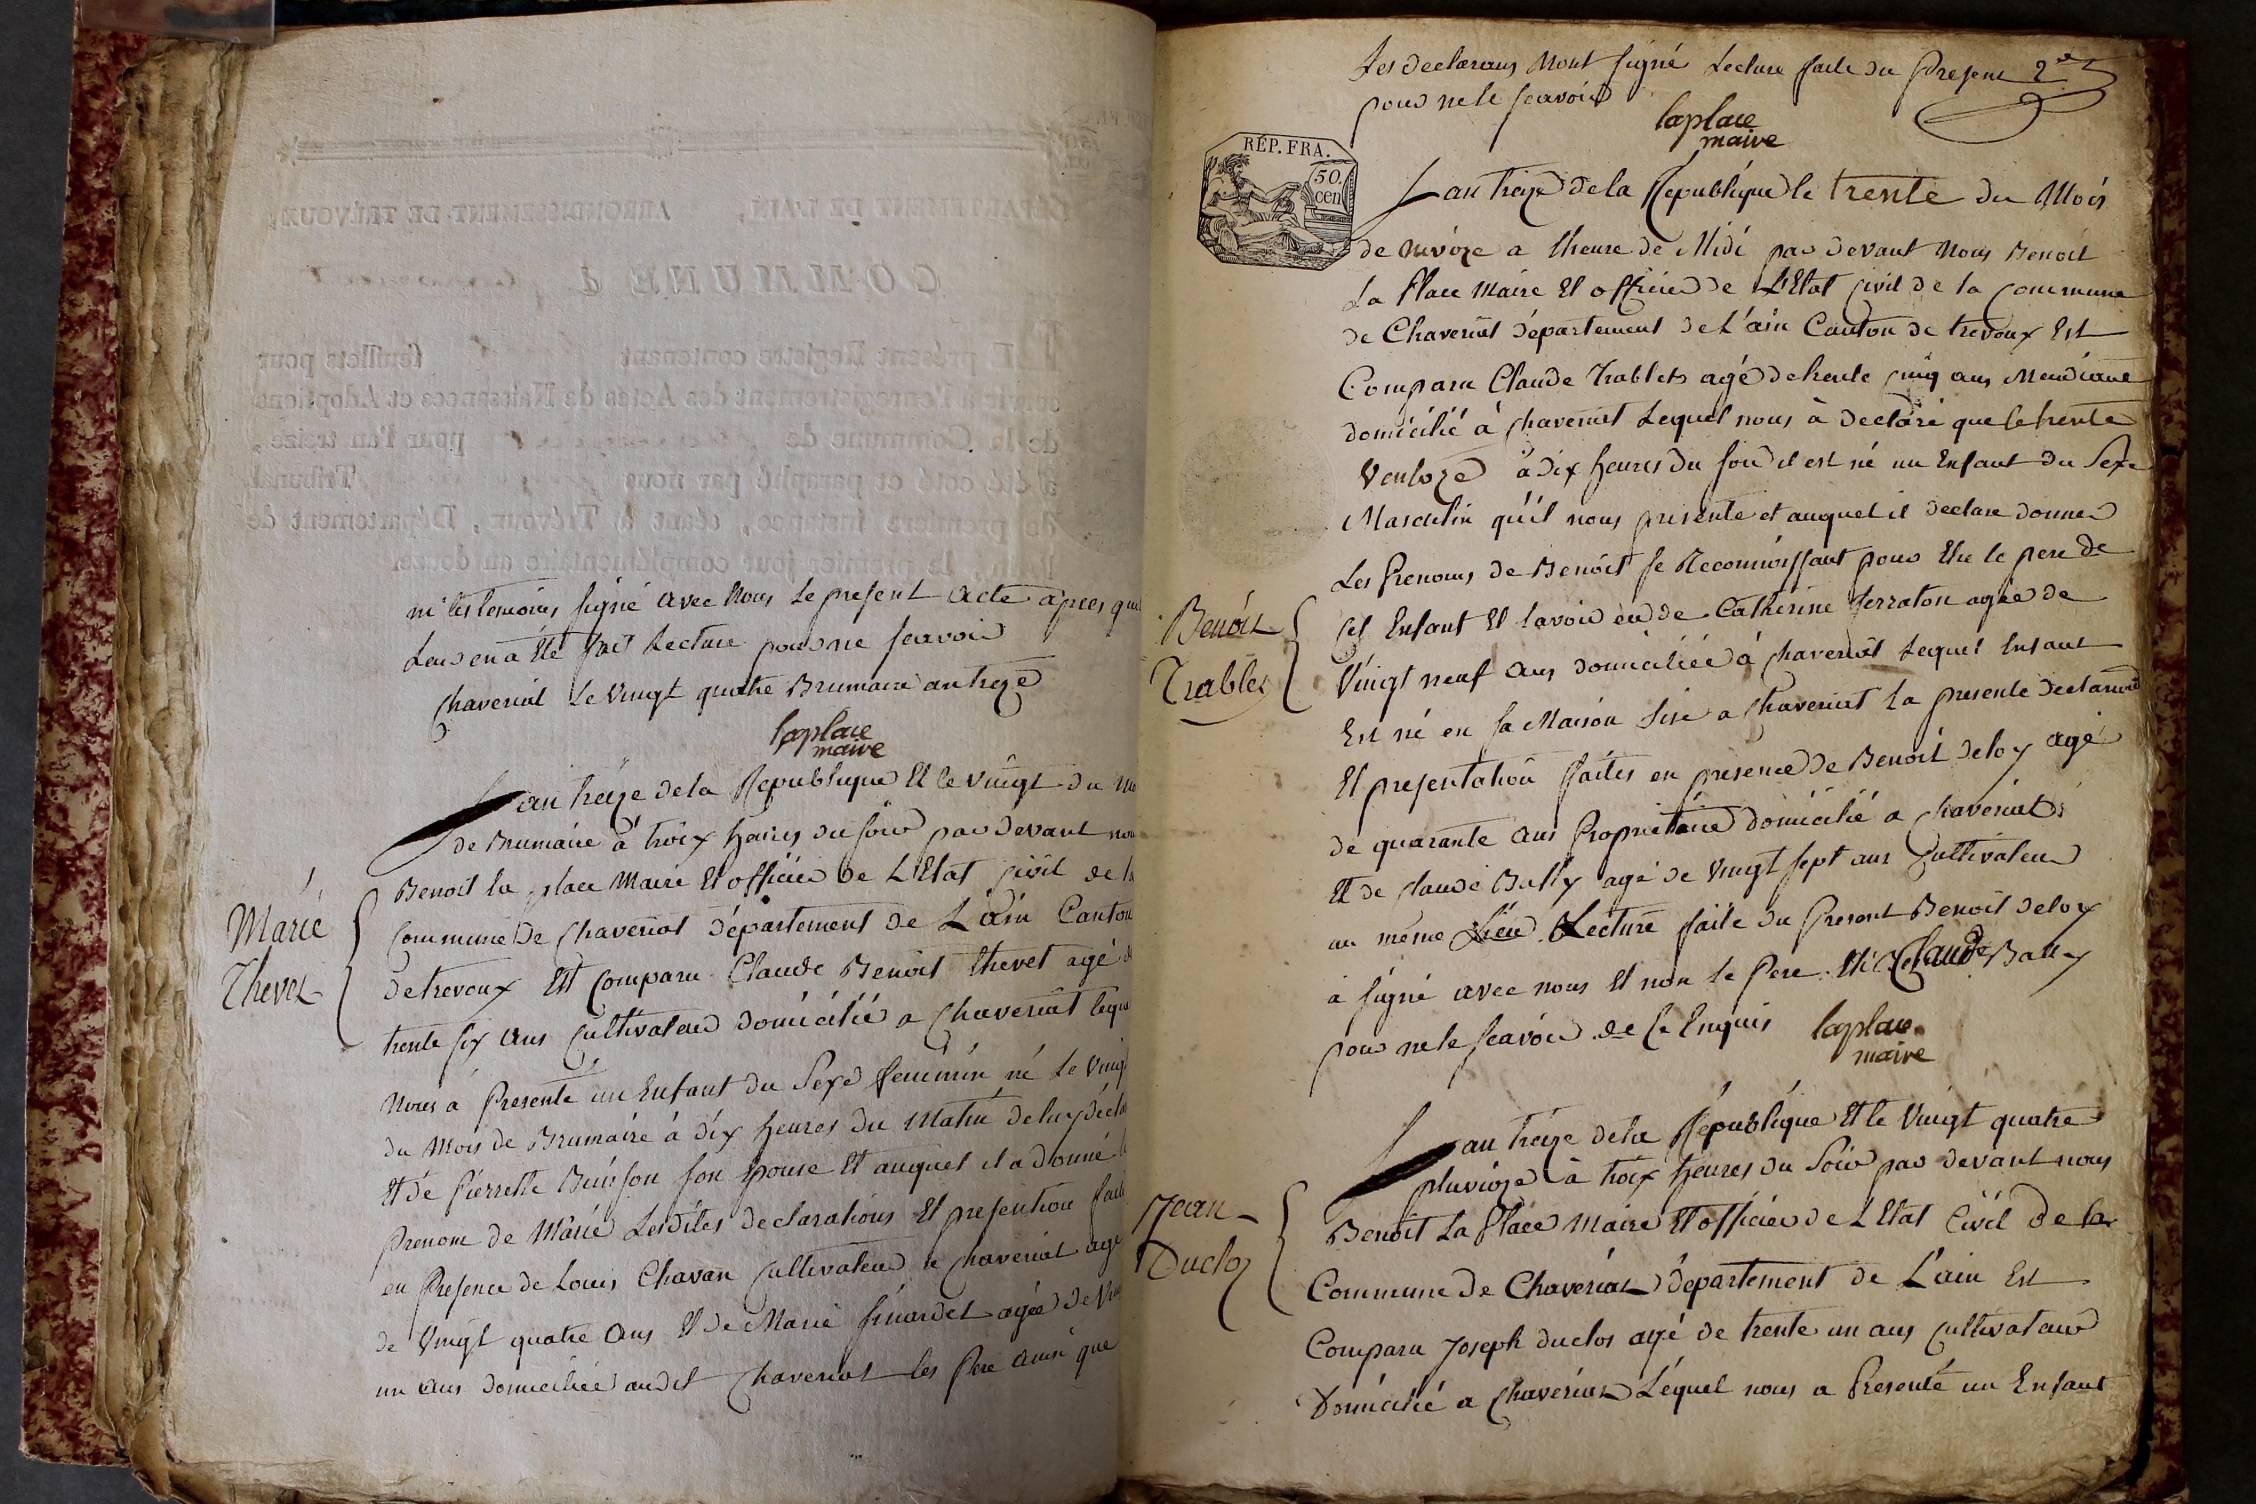 ni les temoins signé avec nous le present acte apres que
Leur en a Eté fait Lecture pour ne scavoir
Chaveriat Le vingt quatre Brumaire an treze
laplace
maire
Marie
Thevet
L'an treize de la Republique Et le vingt du
de Brumaire à troix heures du soir par devant nous
Benoit la place Maire Et officier de L'Etat civil de la
Commune de Chaveriat département de L'ain Canton
de trevoux Est Comparu Claude Benoit thevet agé de
trente six ans Cultivateur domicilié a Chaveriat lequel
nous a Presenté un Enfant du Sexe feminin né Le vingt
du mois de Brumaire à dix heures du Matin de luy
Et de Pierrette Buisson son Epouse Et auquel il a donné le
prenom de Marie Lesdites declarations Et presention
en Presence de Louis Chavan Cultivateur a Chaveriat agé
de vingt quatre ans Et de Marie agée de
un ans domiciliée audit Chaveriat les Pere ainsi que
Les declarans n'ont signé Lecture faite du Present 2e
pour ne le scavoir
laplace
maire
RÉP. FRA.
50.
cen
L'an treize de la Republique le trente du Mois
de nivoze a l'heure de Midi par devant nous Benoit
La Place Maire Et officier de L'Etat civil de la Commune
de Chaveriat département de L'ain Canton de trevoux Est
Comparu Claude Trablet agé de trente cinq ans
domicilié à Chaveriat Lequel nous à declaré que le trente
à dix heures du soir il est né un Enfant du Sexe
Masculin qu'il nous presente et auquel il declare donner
Les Prenoms de Benoit se Reconnoissant pour Etre le pere de
Cet Enfant Et l'avoir eu de Catherine ferraton agée de
vingt neuf ans domiciliée à Chaveriat Lequel Enfant
Est né en sa Maison sise a Chaveriat la presente declaration
Et presentation faites en presence de Benoit deloy agé
de quarante ans Proprietaire domicilié a Chaveriat
Et de Claude Bally agé de vingt sept ans Cultivateur
au même Lieu. Lecture faite du Present Benoit deloy
à signé avec nous Et non le Pere. Claude Bally
pour ne le scavoir de Ce Enquis
laplace
maire
Benoit
Trablet
Jean
Ducloz
L'an treize de la Republique Et le vingt quatre
pluvioze à troix heures du Soir par devant nous
Benoit La Place Maire Et officier de L'Etat Civil de la
Commune de Chaveriat département de L'ain Est
Comparu Joseph duclos agé de trente un ans Cultivateur
Domicilié a Chaveriat Lequel nous a Presenté un Enfant